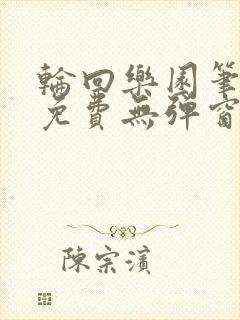 輪回樂園筆
免費無彈窗
陳宗濱